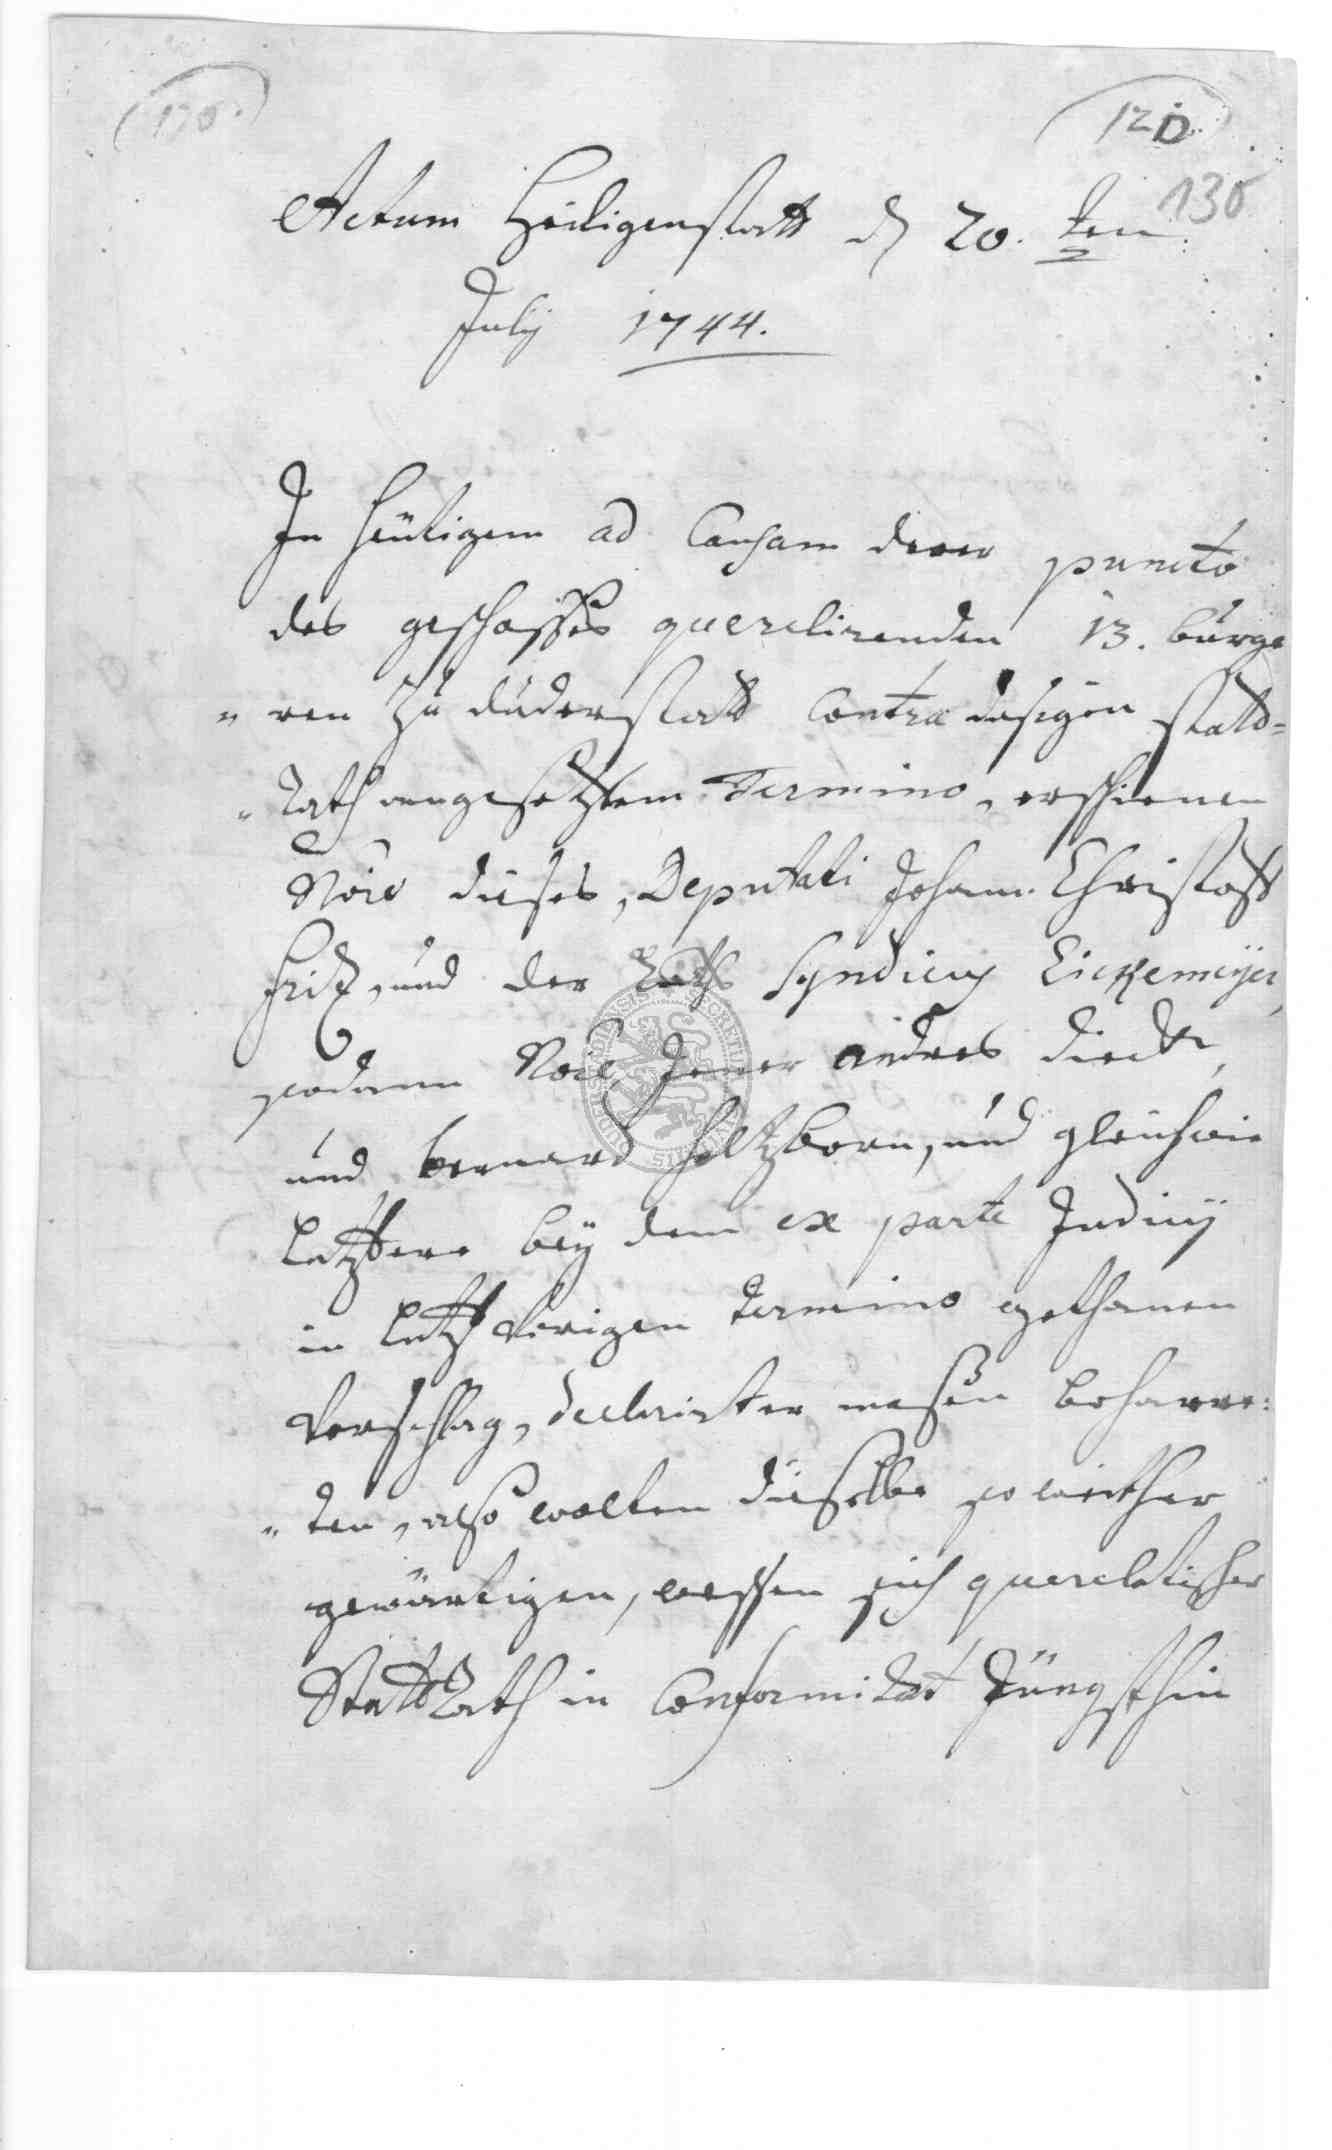 120.
130
Actum Heiligenstatt d 20. ten
July 1744.
In heütigem ad Causam derer puncto
des geschosses querelirenden 13. bürge
" ren zu düderstatt Contra dasigen statt-
" Rath angesetztem Termino, erschienen
Noie dieses, Deputati Johann Christoff
Fritz, und der Raths Syndicus Eickemeyer,
sodann Noie Jener andres Dierk,
und bernard Holtzborn, und gleichwie
letztere bey dem ex parte Judicij
in letzt vorigen termino gethanen
Vorschlag, declarirter maßen beharre:
" ten, also wolten dieselbe so weither
gewärtigen, wessen sich querelatischer
Statt Rath in Conformität Jüngsthin